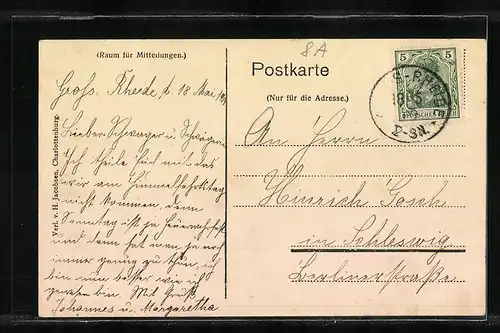 8A
(Raum für Mitteilungen.)
Postkarte
(Nur für die Adresse.)
5 5
Verl. v. H. Jacobsen, Charlottenburg.
Gross. Rheide, d 18 Mai
Lieber Schwager u Schwägerin
Ich theile Euch mit das
wir am Himmelfahrtstag
nicht kommen, denn
Sonntag ist ja Feuerwehrfest
und denn hat man ja noch
immer genug zu thun,
bin nun besser wie ich
Mit Gruß
Johannes u. Margaretha
An Herrn
Hinrich Gosch
in Schleswig
Berlinerstraße